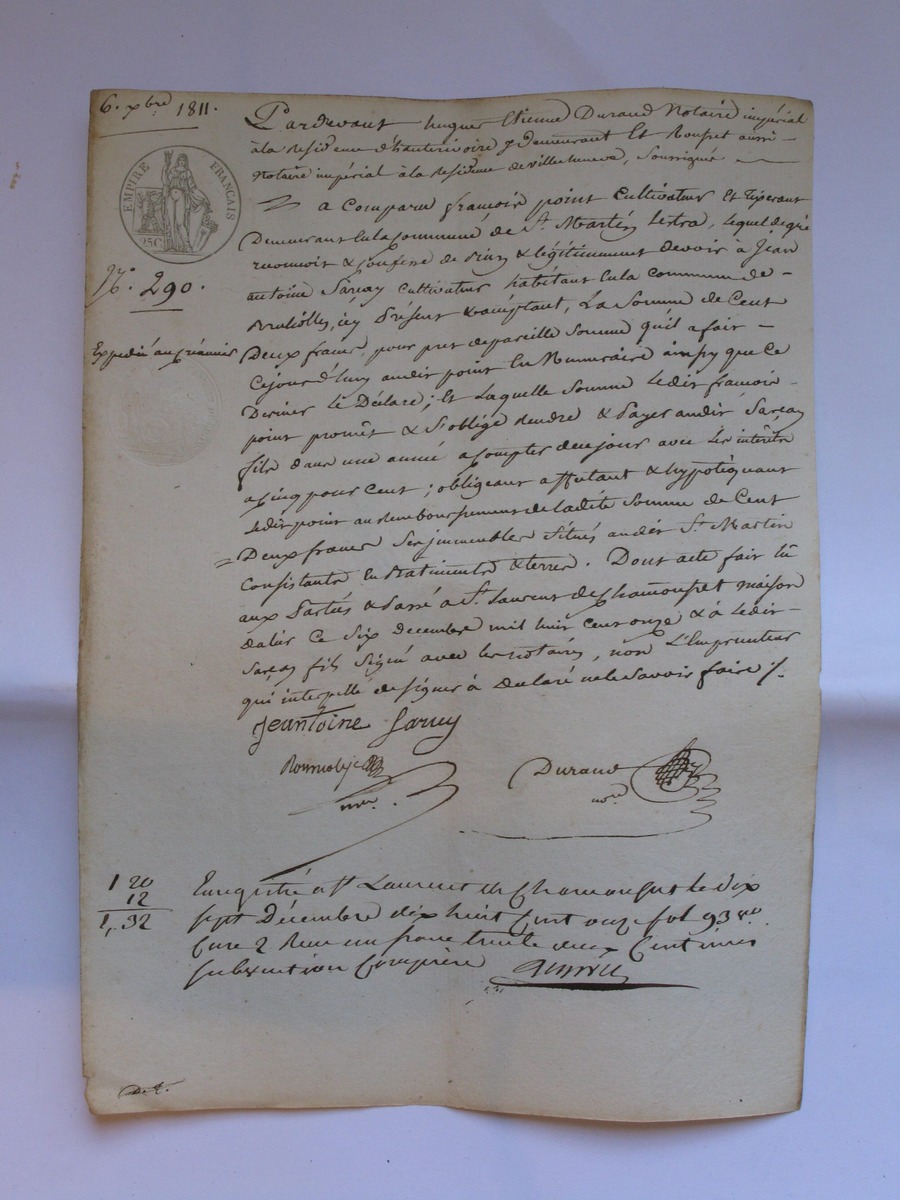 6. xbre 1811.
Pardevant hugues Etienne Durand Notaire impérial
à la Residence d'hauterivoire y Demeurant Et Rouset aussi
Notaire impérial à la Residence de villecheneve, Soussigné
a Comparu françois point Cultivateur Et Tixerant
Demeurant En la Commune de St. Martin Lestra, lequel de gré
reconnoit & Confesse de bien & légitimement devoir à Jean
antoine Sarcey Cultivateur habitant En la Commune de
brulliolles, icy Présent & acceptant, La Somme de Cent
Deux francs, pour pret de pareille Somme qu'il a fait
Cejourd'huy audit point En Numeraire ainsy que Ce
Dernier le Déclare; Et Laquelle Somme ledit françois
point promet & S'oblige Rendre & Payer audit Sarcey
fils dans une année a Compter de ce jour avec les intérêts
a cinq pour Cent; obligeant affectant & hypotéquant
ledit point au Remboursement de ladite Somme de Cent
Deux francs Ses immeubles Situés audit St. Martin
Consistants En Batiments & terres. Dont acte fait lu
aux Parties & Passé a St. Laurent de Chamousset maison
dalier Ce Six décembre mil huit Cent onze & à ledit
Sarcey fils Signé avec les notaires, non L'Emprunteur
qui interpellé de signer à Déclaré ne le Savoir faire /.
EMPIRE FRANÇAIS
25C
No. 290.
Expédié au Créancier
Jeantoine Sarcey
Durand
nore
1 20
12
1, 32
Enregistré a St Laurent de Chamousset le dix
sept Décembre dix huit Cent onze fol 93 Ro.
Case 2 Reçu un franc trente deux Centimes
subvention Comprise